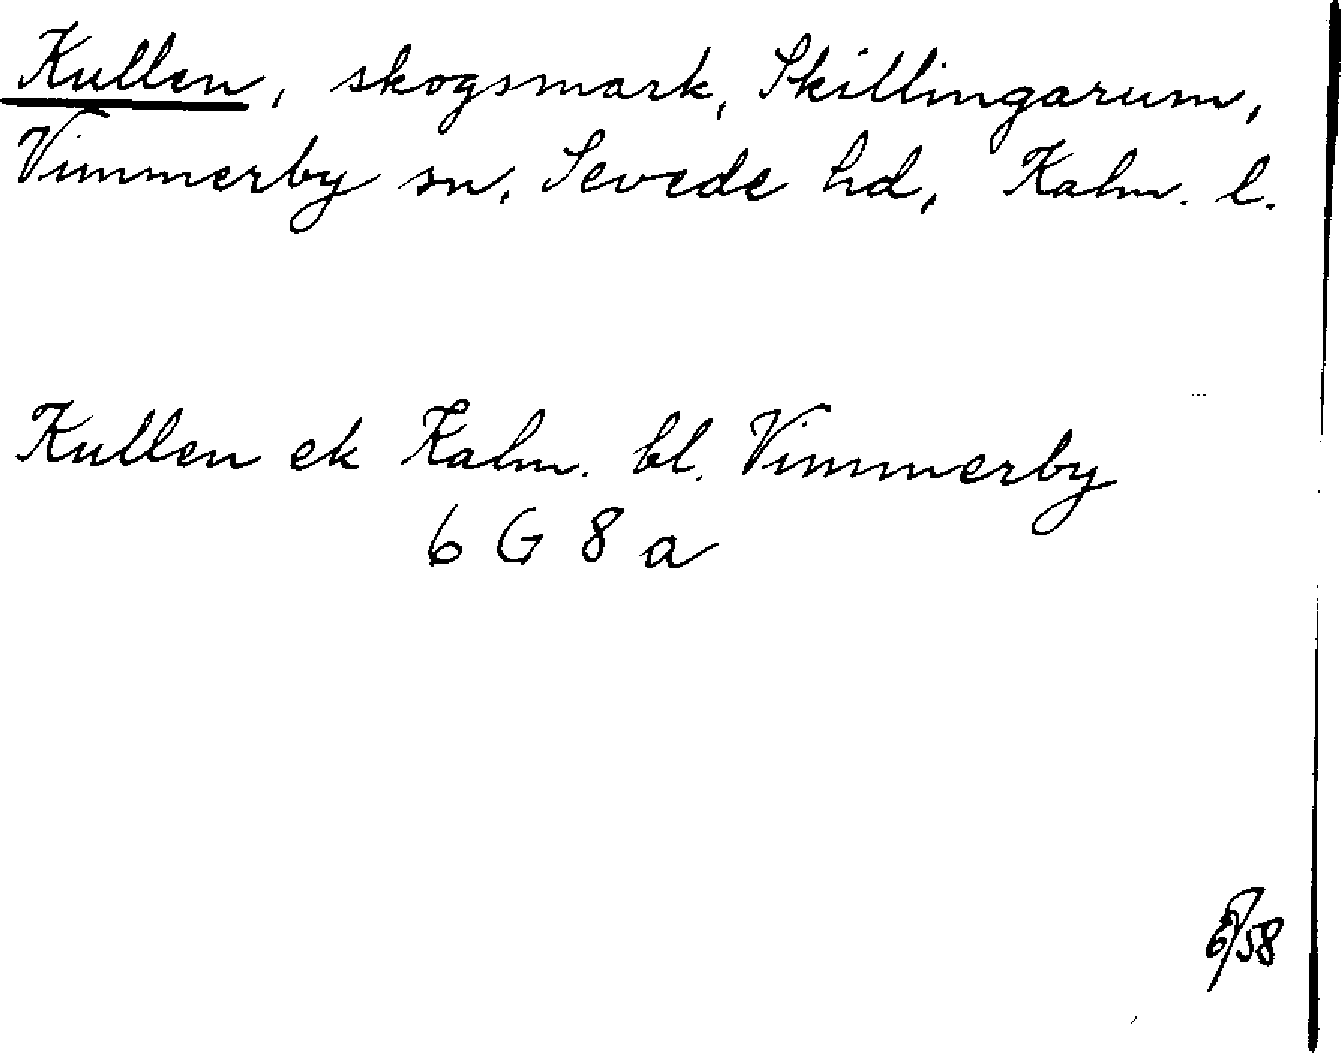 Kullen, skogsmark, Skillingarum,
Vimmerby sn, Sevede hd, Kalm. l.
Kullen ek Kalm. bl. Vimmerby
6 G 8 a